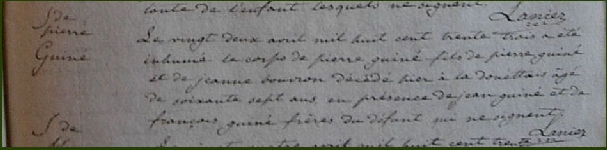 tante de l'enfant lesquels ne signent. Laniez
S. de pierre Guiné
Le vingt deux avril mil huit cent trente trois a été
inhumé le corps de pierre guiné fils de pierre guiné
et de jeanne bouvron décédé hier à la douettais âgé
de soixante sept ans, en présence de jean guiné et de
françois guiné frères du défunt qui ne signent
Laniez
S. de
avril mil huit cent trente